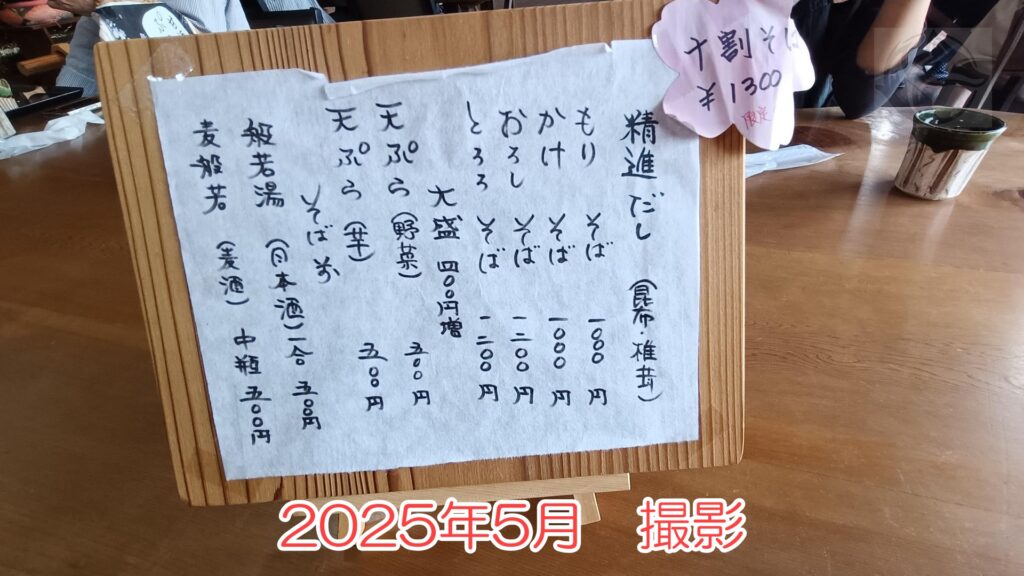 十割そば
¥1300
限定
精進だし (昆布・椎茸)
もりそば 一000円
かけそば 一000円
おろしそば 一二00円
とろろそば 一二00円
大盛 四00円増
天ぷら (野菜) 五00円
天ぷら (芋) 五00円
そば前
般若湯 (日本酒) 一合 五00円
麦般若 (麦酒) 中瓶 五00円
2025年5月 撮影